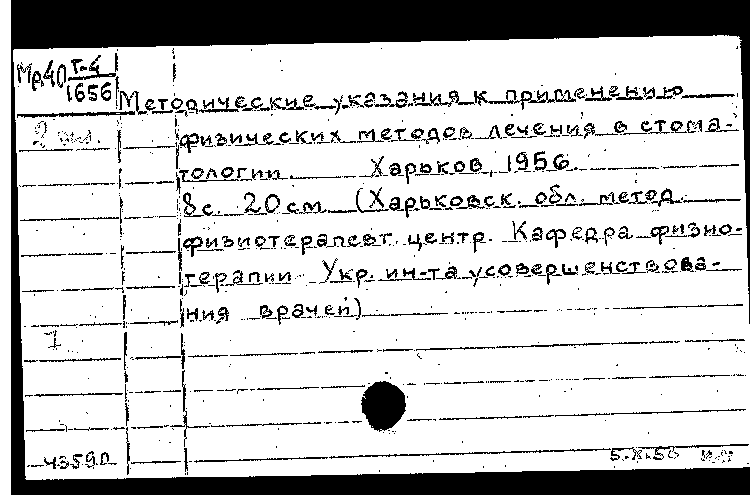 Мр40 Т-4
1656
Методические указания к применению
2 экз.
физических методов лечения в стома-
тологии. Харьков, 1956.
8 с. 20 см (Харьковск. обл. метод.
физиотерапевт. центр. Кафедра физио-
терапии Укр. ин-та усовершенствова-
ния врачей)
1
4359п
5.X.56